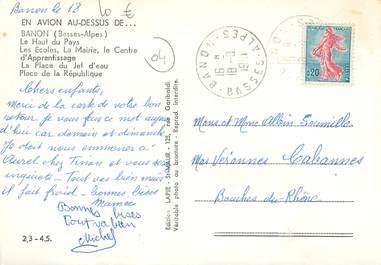 Banon le 18
10 F
EN AVION AU-DESSUS DE...
BANON (Basses-Alpes)
Le Haut du Pays
Les Ecoles, La Mairie, le Centre
d'Apprentissage
La Place du Jet d'eau
Place de la République
04
Chers enfants,
Merci de la carte de votre bon
retour je vous fais ce mot aujour
d'hui car demain et dimanche
je dois nous emmener à
Aurel chez Vivian et vous êtes
inquiets - Tout va bien mais
il fait froid - bonnes bises
Mamée
Bonnes bises
Tout va bien
Michel
2,3-4.5.
Edition LAPIE - St-MAUR - 125, rue Garibaldi
Véritable photo au bromure - Reprod. Interdite.
BANON
BASSES-ALPES
0,20
Mons. et Mme Alain
Mas Verannes Cabannes
Bouches du-Rhône